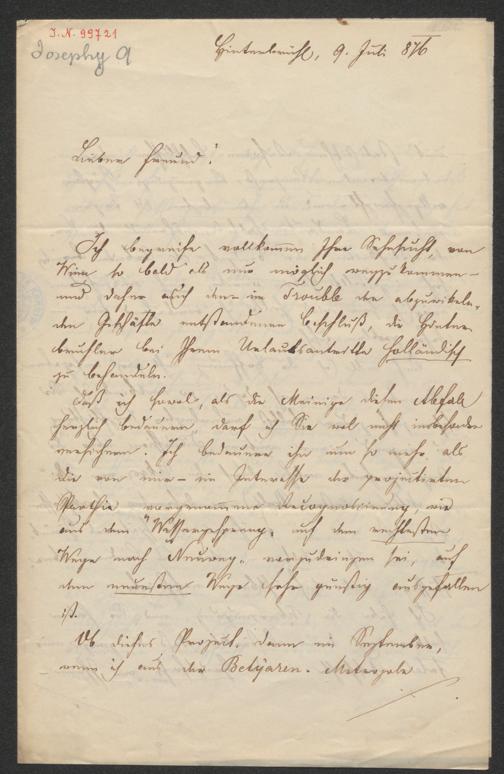 I. N. 99721
Josephy 9
Hinterbrühl, 9. Juli 876
Lieber Freund!
Ich begreife vollkommen Ihre Sehnsucht, von
Wien so bald als nur möglich wegzukommen –
und daher auch den im Trouble der abzuwickeln-
den Geschäfte entstandenen Beschluß, die Hinter-
brühler bei Ihrem Urlaubsantritte holländisch
zu behandeln.
Daß ich sowol, als die Meinige diesen Abfall
herzlich bedauern, darf ich Sie wol nicht insbesondere
versichern. Ich bedauere ihn um so mehr, als
die von mir – im Interesse der projectirten
Parthie vorgenommene Recognoscierung, wie
aus dem "Wassergespreng" auf dem
Wege nach Neuweg" vorzudringen sei, auf
dem Wege sehr günstig ausgefallen
ist.
Ob dieses Project, dann im September,
wenn ich aus der Betyáren-Metropole